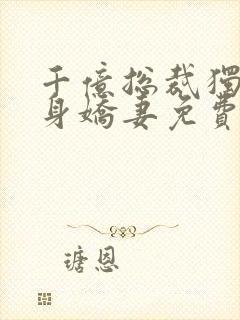 千億总裁獨
身嬌妻免費
瑭恩